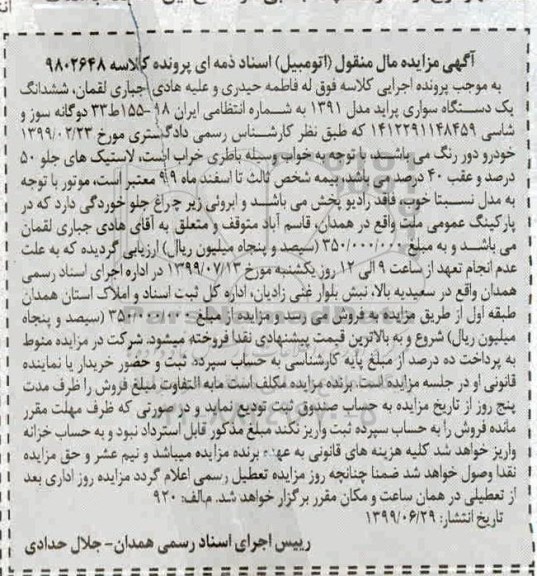 آگهی مزایده مال منقول (اتومبیل) اسناد ذمه ای پرونده کلاسه ۹۸۰۲۶۴۸
به موجب پرونده اجرایی کلاسه فوق له فاطمه حیدری و علیه هادی جباری لقمان، ششدانگ
یک دستگاه سواری پراید مدل ۱۳۹۱ به شماره انتظامی ایران ۱۸-۱۵۵ط۳۳ دوگانه سوز و
شاسی ۱۴۱۲۲۹۱۱۴۸۴۵۹ که طبق نظر کارشناس رسمی دادگستری مورخ ۱۳۹۹/۰۲/۲۳
خودرو دور رنگ می باشد، با توجه به خواب وسیله باطری خراب است، لاستیک های جلو ۵۰
درصد و عقب ۴۰ درصد می باشد، بیمه شخص ثالث تا اسفند ماه ۹۹ معتبر است، موتور با توجه
به مدل نسبتا خوب، فاقد رادیو پخش می باشد و ابرویی زیر چراغ جلو خوردگی دارد که در
پارکینگ عمومی ملت واقع در همدان، قاسم آباد متوقف و متعلق به آقای هادی جباری لقمان
می باشد و به مبلغ ۳۵۰/۰۰۰/۰۰۰ (سیصد و پنجاه میلیون ریال) ارزیابی گردیده که به علت
عدم انجام تعهد از ساعت ۹ الی ۱۲ روز یکشنبه مورخ ۱۳۹۹/۰۷/۱۳ در اداره اجرای اسناد رسمی
همدان واقع در سعیدیه بالا، نبش بلوار غنی زادیان، اداره کل ثبت اسناد و املاک استان همدان
طبقه اول از طریق مزایده به فروش می رسد و مزایده از مبلغ ۳۵۰/۰۰۰/۰۰۰ (سیصد و پنجاه
میلیون ریال) شروع و به بالاترین قیمت پیشنهادی نقدا فروخته میشود. شرکت در مزایده منوط
به پرداخت ده درصد از مبلغ پایه کارشناسی به حساب سپرده ثبت و حضور خریدار یا نماینده
قانونی او در جلسه مزایده است. برنده مزایده مکلف است مابه التفاوت مبلغ فروش را ظرف مدت
پنج روز از تاریخ مزایده به حساب صندوق ثبت تودیع نماید و در صورتی که ظرف مهلت مقرر
مانده فروش را به حساب سپرده ثبت واریز نکند مبلغ مذکور قابل استرداد نبود و به حساب خزانه
واریز خواهد شد کلیه هزینه های قانونی به عهده برنده مزایده میباشد و نیم عشر و حق مزایده
نقدا وصول خواهد شد ضمنا چنانچه روز مزایده تعطیل رسمی اعلام گردد مزایده روز اداری بعد
از تعطیلی در همان ساعت و مکان مقرر برگزار خواهد شد. م/الف: ۹۲۰
تاریخ انتشار: ۱۳۹۹/۰۶/۲۹
رییس اجرای اسناد رسمی همدان- جلال حدادی